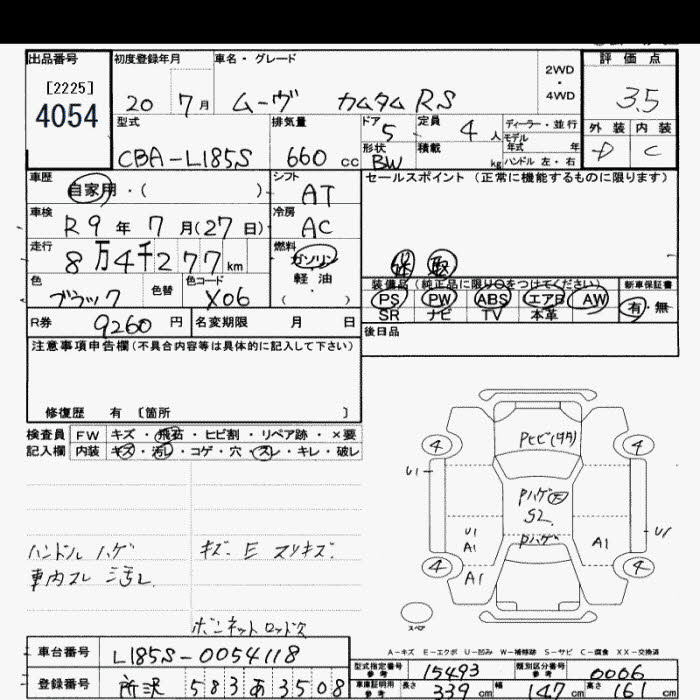 出品番号 初度登録年月 車名・グレード 2WD ・ 4WD 評価点
[2225]
4054
20 7月 ムーヴ カムタム RS 3.5
型式 排気量 ドア 5 定員 4人 ディーラー・並行 外装 内装
モデル年式 年
CBA-L185S 660 cc 形状 BW 積載 kg ハンドル 左・右 D C
車歴 自家用・( ) シフト AT セールスポイント (正常に機能するものに限ります)
車検 R9年7月(27日) 冷房 AC
走行 8万4千277km 燃料 ガソリン 軽油 ( )
取
色 ブラック 色替 色コード X06
装備品 (純正品に限り○をつけてください) 新車保証書
PS PW ABS エアB AW 有・無
SR ナビ TV 本革
R券 9260円 名変期限 月 日 後日品
注意事項申告欄(不具合内容等は具体的に記入して下さい)
修復歴 有 〔箇所 〕
検査員 FW キズ・飛石・ヒビ割・リペア跡・×要
記入欄 内装 キズ・汚レ・コゲ・穴・スレ・キレ・破レ
PヒビC(タタ)
4 4
U1
Pハゲ
S2
U1
U1
A1 Pハゲ A1
4 4
A1
スペア
ハンドル ハゲ
車内スレ 汚レ
キズ E スリキズ
ボンネットロッド欠
A-キズ E-エクボ U-凹み W-補修跡 S-サビ C-腐食 XX-交換済
車台番号 L185S-0054118
型式指定番号 参考 15493 類別区分番号 参考 0006
登録番号 所沢 583 あ 3508
車庫証明用 参考 長さ 339cm 幅 147cm 高さ 161cm